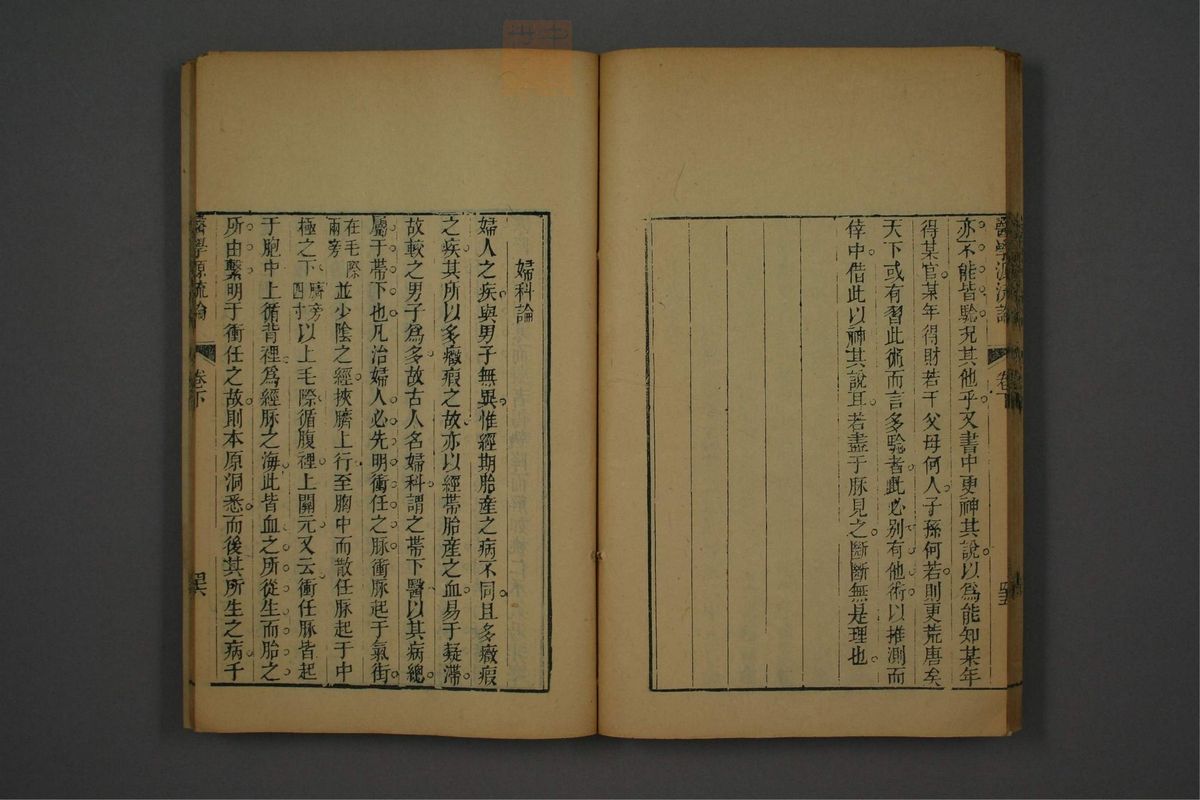 醫學源流論
卷下
亦不能皆驗況其他乎又書中更神其說以爲能知某年
得某官某年得財若干父母何人子孫何若則更荒唐矣
天下或有習此術而言多驗者此必别有他術以推測而
倖中借此以神其說耳若盡于脉見之斷斷無是理也
婦科論
婦人之疾與男子無異惟經期胎産之病不同且多癥瘕
之疾其所以多癥瘕之故亦以經帶胎産之血易于凝滯
故較之男子爲多故古人名婦科謂之帶下醫以其病總
屬于帶下也凡治婦人必先明衝任之脉衝脉起于氣街
在毛際兩旁並少陰之經挾臍上行至胸中而散任脉起于中
極之下臍旁四寸以上毛際循腹裡上關元又云衝任脉皆起
于胞中上循背裡爲經脉之海此皆血之所從生而胎之
所由繫明于衝任之故則本原洞悉而後其所生之病千
醫學源流論
卷下